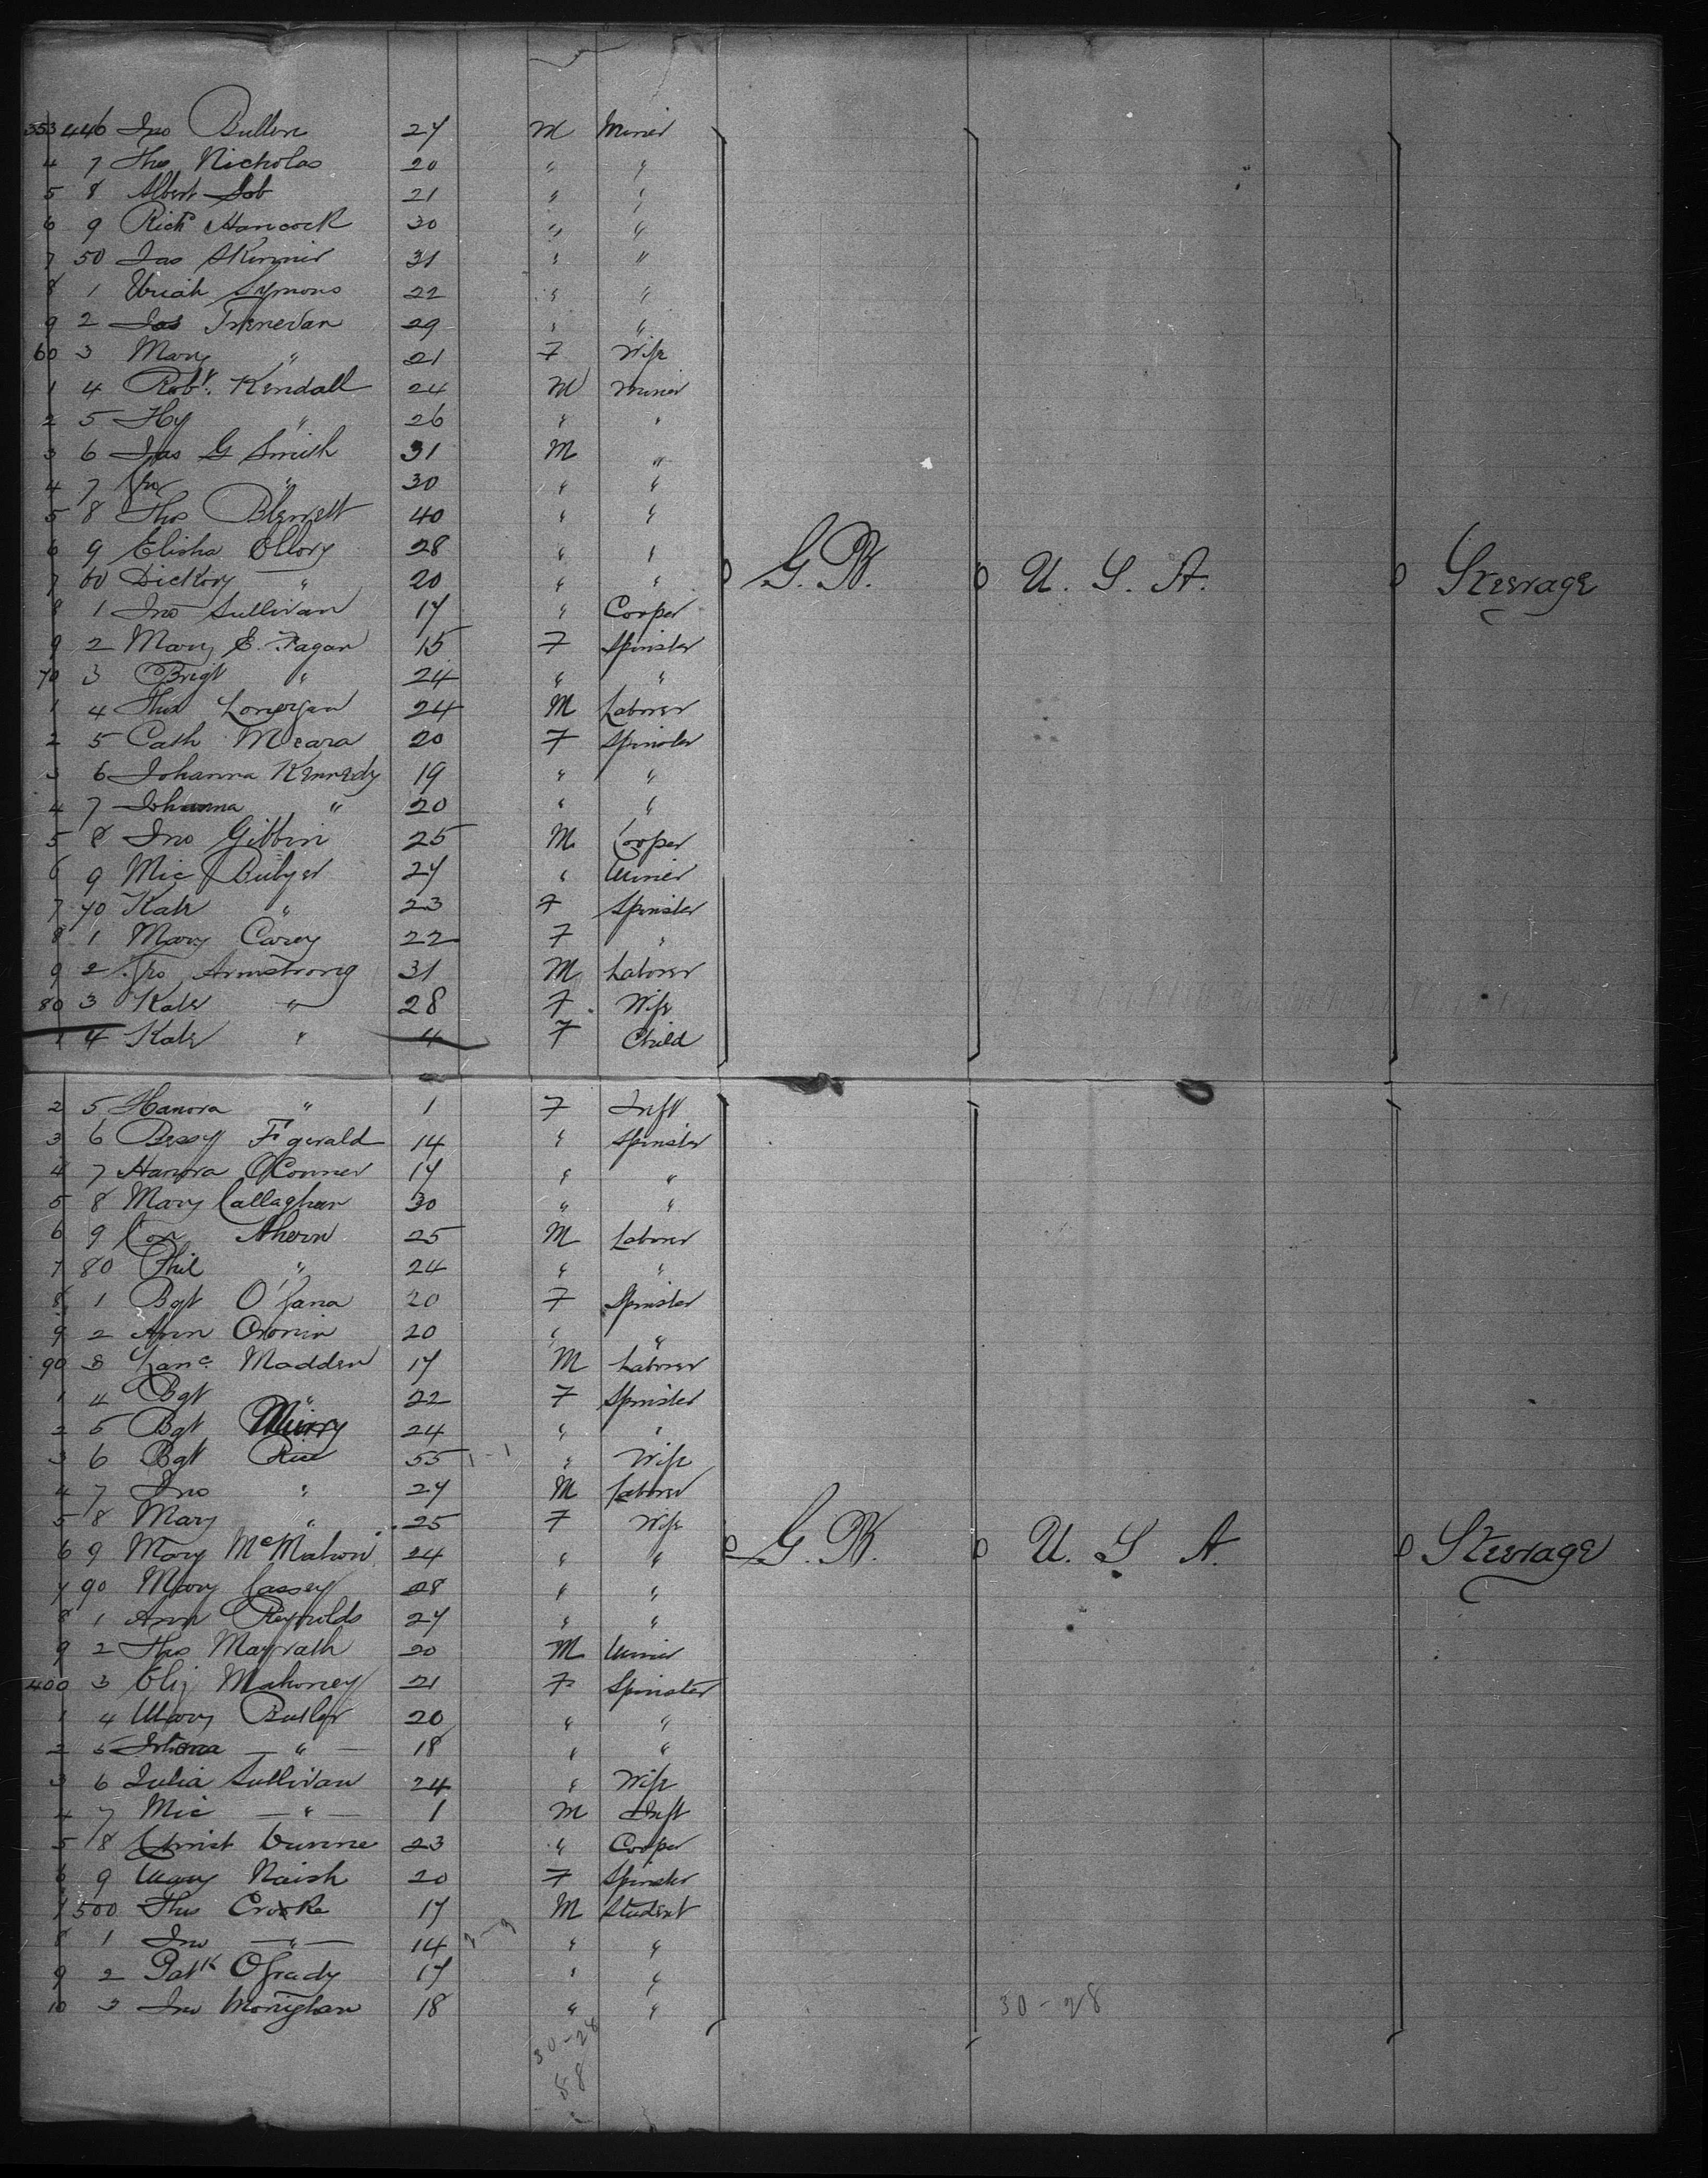 353 446 Jno Bullen 27 M Miner
4 7 Thos Nicholas 20 " "
5 8 Albert Job 21 " "
6 9 Richd Hancock 30 " "
7 50 Jas Skinner 31 " "
8 1 Uriah Symons 22 " "
9 2 Jas Trenevan 29 " "
60 3 Mary " 21 F Wife
1 4 Robt. Kendall 24 M Miner
2 5 Hy " 26 " "
3 6 Jas G Smith 31 M "
4 7 Jno " 30 " "
5 8 Thos Blewett 40 " "
6 9 Elisha Ellory 28 " "
G.B. U.S.A. Steerage
7 60 Dickory " 20 " "
8 1 Jno Sullivan 17 " Cooper
9 2 Mary E. Fagan 15 F Spinster
70 3 Brigt " 24 " "
1 4 Thos Lonergan 24 M Laborer
2 5 Cath Meara 20 F Spinster
3 6 Johanna Kennedy 19 " "
4 7 Johanna " 20 " "
5 8 Jno Gibbin 25 M Cooper
6 9 Mic 27 " Miner
7 70 Kate " 23 F Spinster
8 1 Mary Carey 22 F "
9 2 Jno Armstrong 31 M Laborer
80 3 Kate " 28 F Wife
1 4 Kate " 4 F Child
2 5 Hanora " 1 F Inft
3 6 Bessy Fgerald 14 " Spinster
4 7 Hanora O'Conner 17 " "
5 8 Mary Callaghan 30 " "
6 9 Con Ahern 25 M Laborer
7 80 Phil " 24 " "
8 1 Bgt 20 F Spinster
9 2 Ann Cronin 20 " "
90 3 Lance Madden 17 M Laborer
1 4 Bgt " 22 F Spinster
2 5 Bgt Murry 24 " "
3 6 Bgt Rice 55 1-1 " Wife
4 7 Jno " 27 M Laborer
5 8 Mary " 25 F Wife
6 9 Mary McMahon 24 " "
G.B. U.S.A. Steerage
7 90 Mary Cassey 28 " "
8 1 Ann Reynolds 27 " "
9 2 Thos Magrath 20 M Miner
400 3 Eliz Mahoney 21 F Spinster
1 4 Mary Butler 20 " "
2 5 — " — 18 " "
3 6 Julia Sullivan 24 " Wife
4 7 Mic — " — 1 M Inft
5 8 Christ Dunne 23 " Cooper
6 9 Mary Naish 20 F Spinster
7 500 Thos Crooke 17 M Student
8 1 Jno — " — 14 " "
9 2 Patk OGrady 17 " "
10 3 Jno Monighan 18 " "
30-28
30-28
58